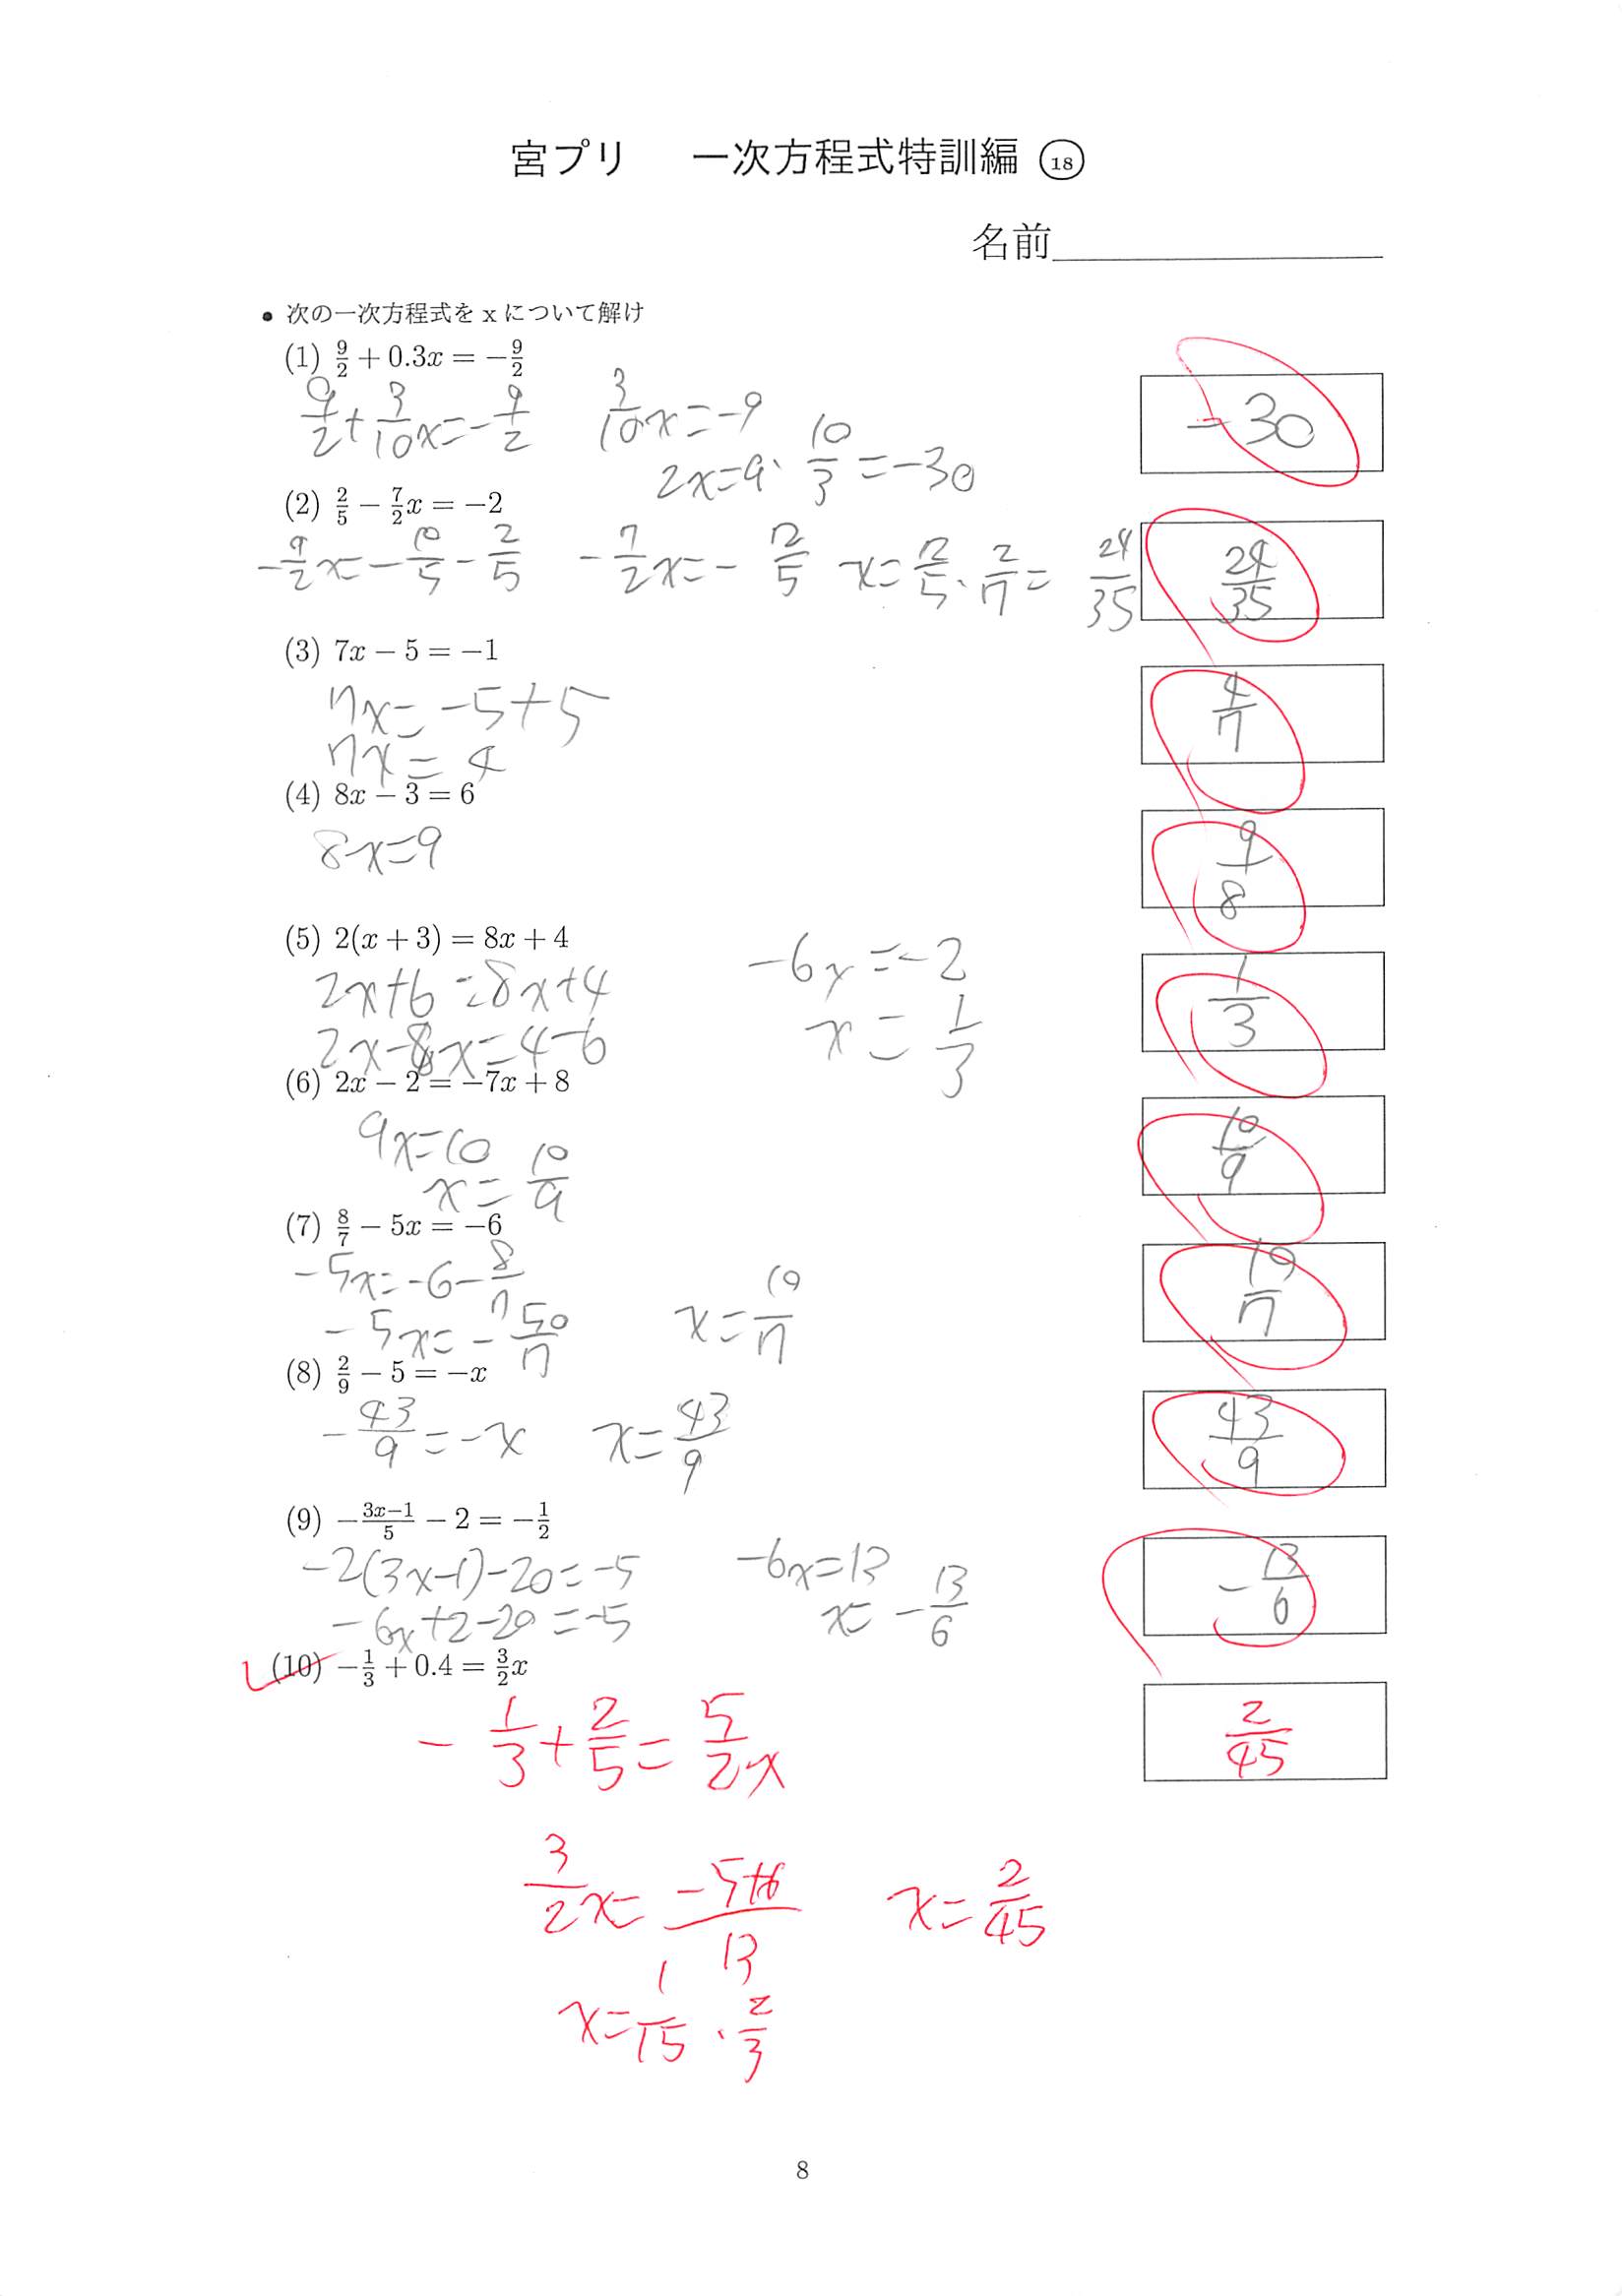 宮プリ 一次方程式特訓編 ⑱
名前
• 次の一次方程式を x について解け
(1) 9/2 + 0.3x = −9/2
9/2 + 3/10 x = −9/2
3/10 x = −9
2x = 9 · 10/3 = −30
−30
(2) 2/5 − 7/2 x = −2
−7/2 x = −10/5 − 2/5
−7/2 x = −12/5
x = 12/5 · 2/7 = 24/35
24/35
(3) 7x − 5 = −1
7x = −5 + 5
7x = 4
4/7
(4) 8x − 3 = 6
8x = 9
9/8
(5) 2(x + 3) = 8x + 4
2x + 6 = 8x + 4
2x − 8x = 4 − 6
−6x = −2
x = 1/3
1/3
(6) 2x − 2 = −7x + 8
9x = 10
x = 10/9
10/9
(7) 8/7 − 5x = −6
−5x = −6 − 8/7
−5x = −50/7
x = 10/7
10/7
(8) 2/9 − 5 = −x
−43/9 = −x
x = 43/9
43/9
(9) −(3x−1)/5 − 2 = −1/2
−2(3x−1) − 20 = −5
−6x + 2 − 20 = −5
−6x = 13
x = −13/6
−13/6
(10) −1/3 + 0.4 = 3/2 x
−1/3 + 2/5 = 5/2 x
3/2 x = (−5+6)/13
x = 1/15 · 2/3
x = 2/45
2/45
8